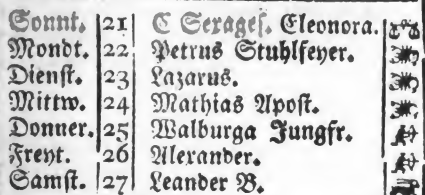 Sonnt. 21 C Sexages. Eleonora.
Mondt. 22 Petrus Stuhlfeyer.
Dienst. 23 Lazarus.
Mittw. 24 Mathias Apost.
Donner. 25 Walburga Jungfr.
Freyt. 26 Alexander.
Samst. 27 Leander B.